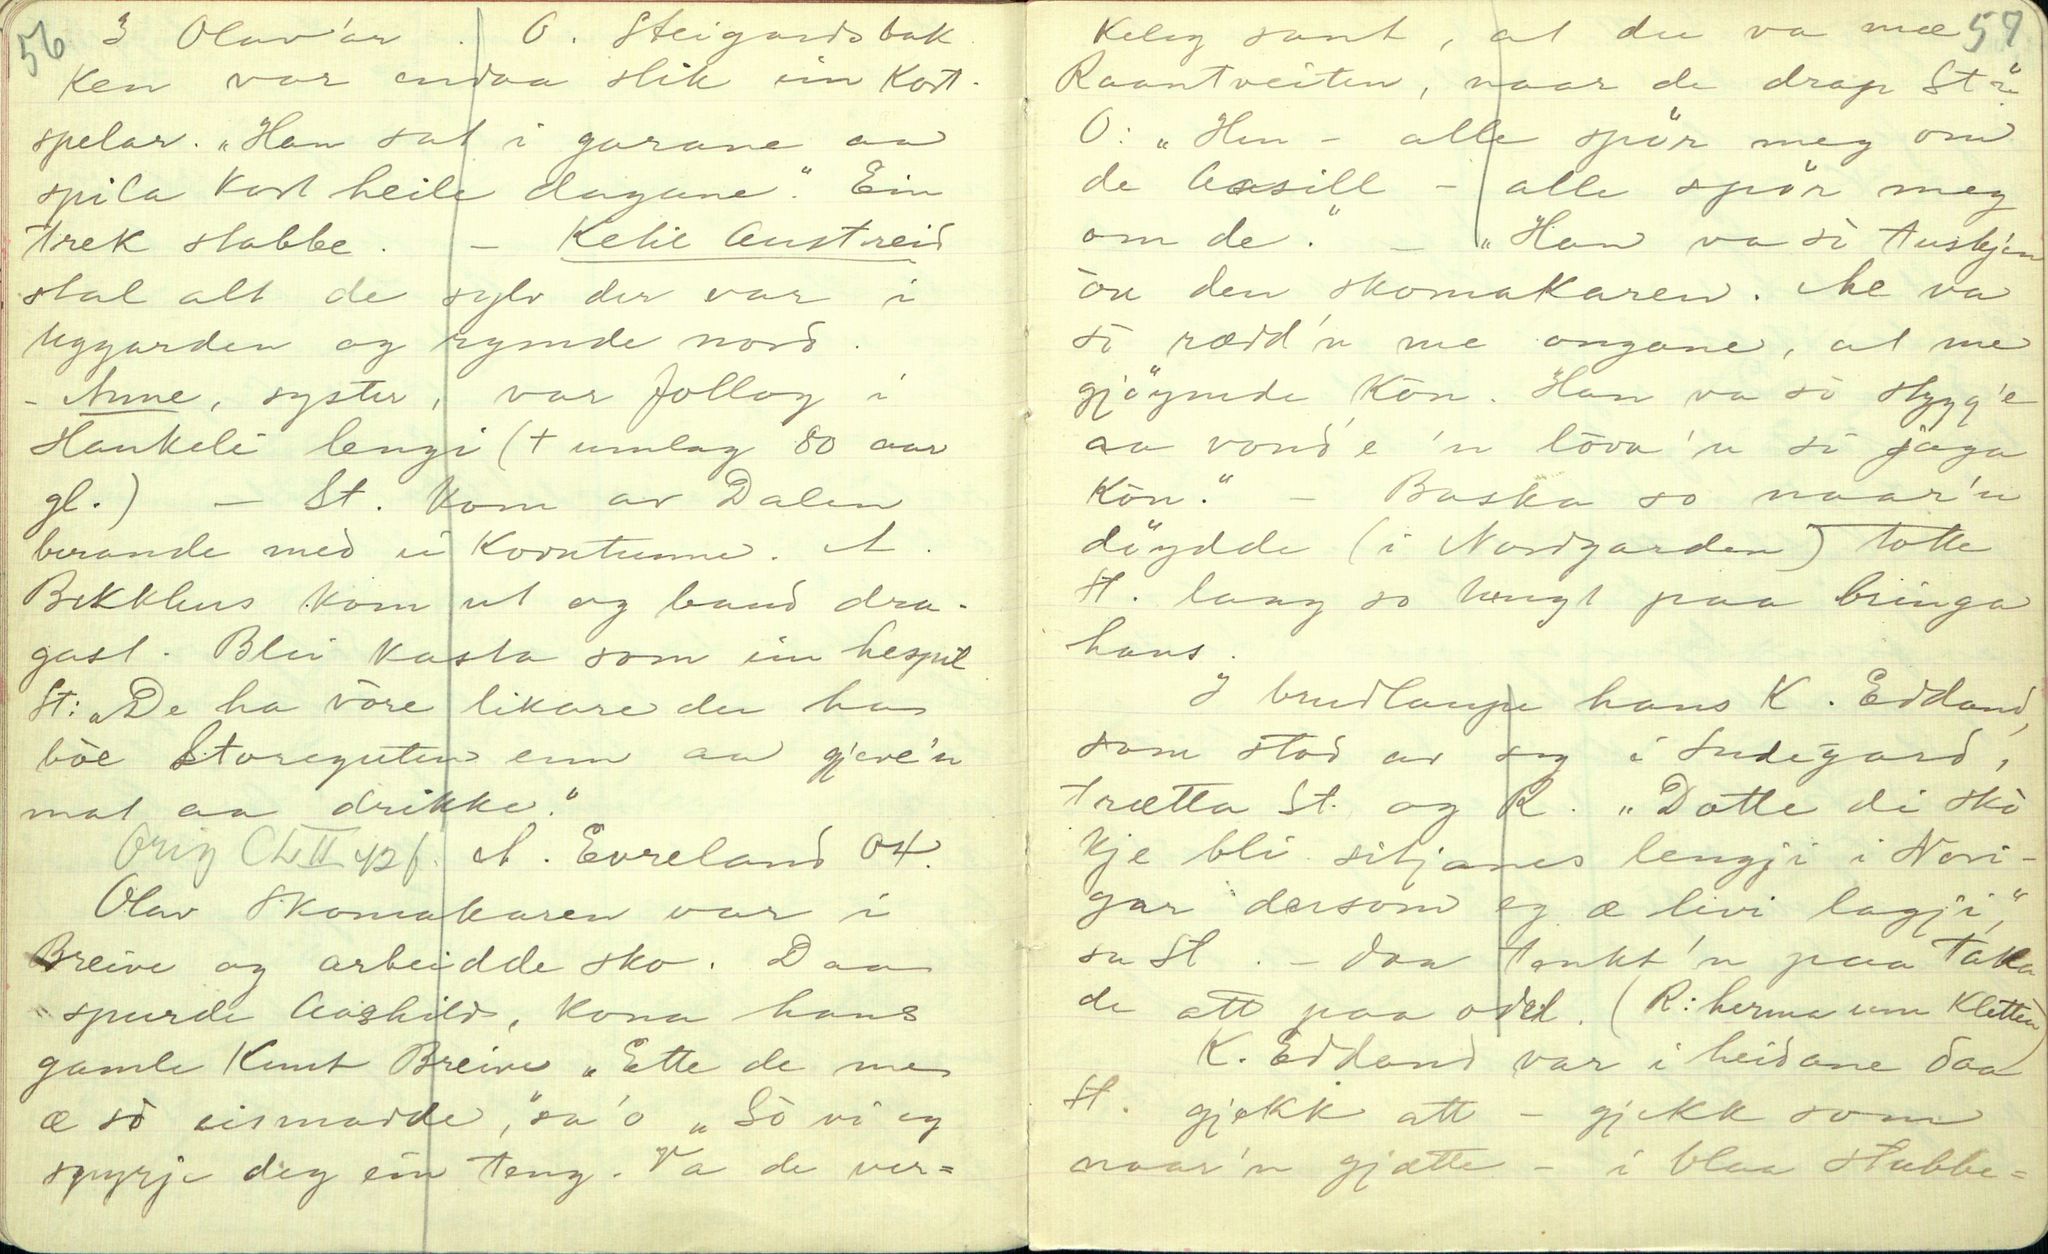 56
3 Olav'ar. O. Steigardsbak
ken var endaa slik ein kort-
spelar. "Han sat i garane aa
spila kort heile dagane." Ein
trek stabbe. – Ketil Austreid
stal alt de sylv der var i
Uggarden og rymde nord.
- Anne, syster, var follog i
Haukeli lengi (+ umlag 80 aar
gl.) – St. kom av Dalen
berande med ei korntunne. A.
Bekkhus kom ut og baud dra-
gast. Blei kasta som ein hespil
St: "De ha vöre likare du ha
böe Storeguten enn aa gjeve'n
mat aa drikke."
Orig A. Evreland 04.
Olav Skomakaren var i
Breive og arbeidde sko. Daa
spurde Aashild, kona hans
gamle Knut Breive "Ette de me
æ sò eismadde," sa'o "Sò vi eg
spyrje deg ein teng. Va de ver=
57
keleg sant, at du va mæ
Raantveiten, naar de drap St."
O: "Hm – alle spör meg om
de Aasill – alle spör meg
om de." – "Han va sò tuskjen
òu den skomakaren. Me va
sò rædd'n me ongane, at me
gjöymde kòn. Han va sò stygg'e
aa vond'e 'n lòva'n sò jaga
kòn." – Baska so naar'n
döydde (i Nordgarden) totte
St. laag so tungt paa bringa
hans.
I brudlaupe hans K. Eddand,
som stod av seg i Sudegard,
trætta St. og R. "Dotte di skò
kje bli sitjanes lengji i Nori-
gar dersom eg æ livi lagji,"
sa St. – Daa tenkt'n paa taka
de att paa odel. (R: herma um Kletten)
K. Eddand var i heidane daa
St. gjekk att – gjekk som
naar'n gjætte – i blaa stubbe=